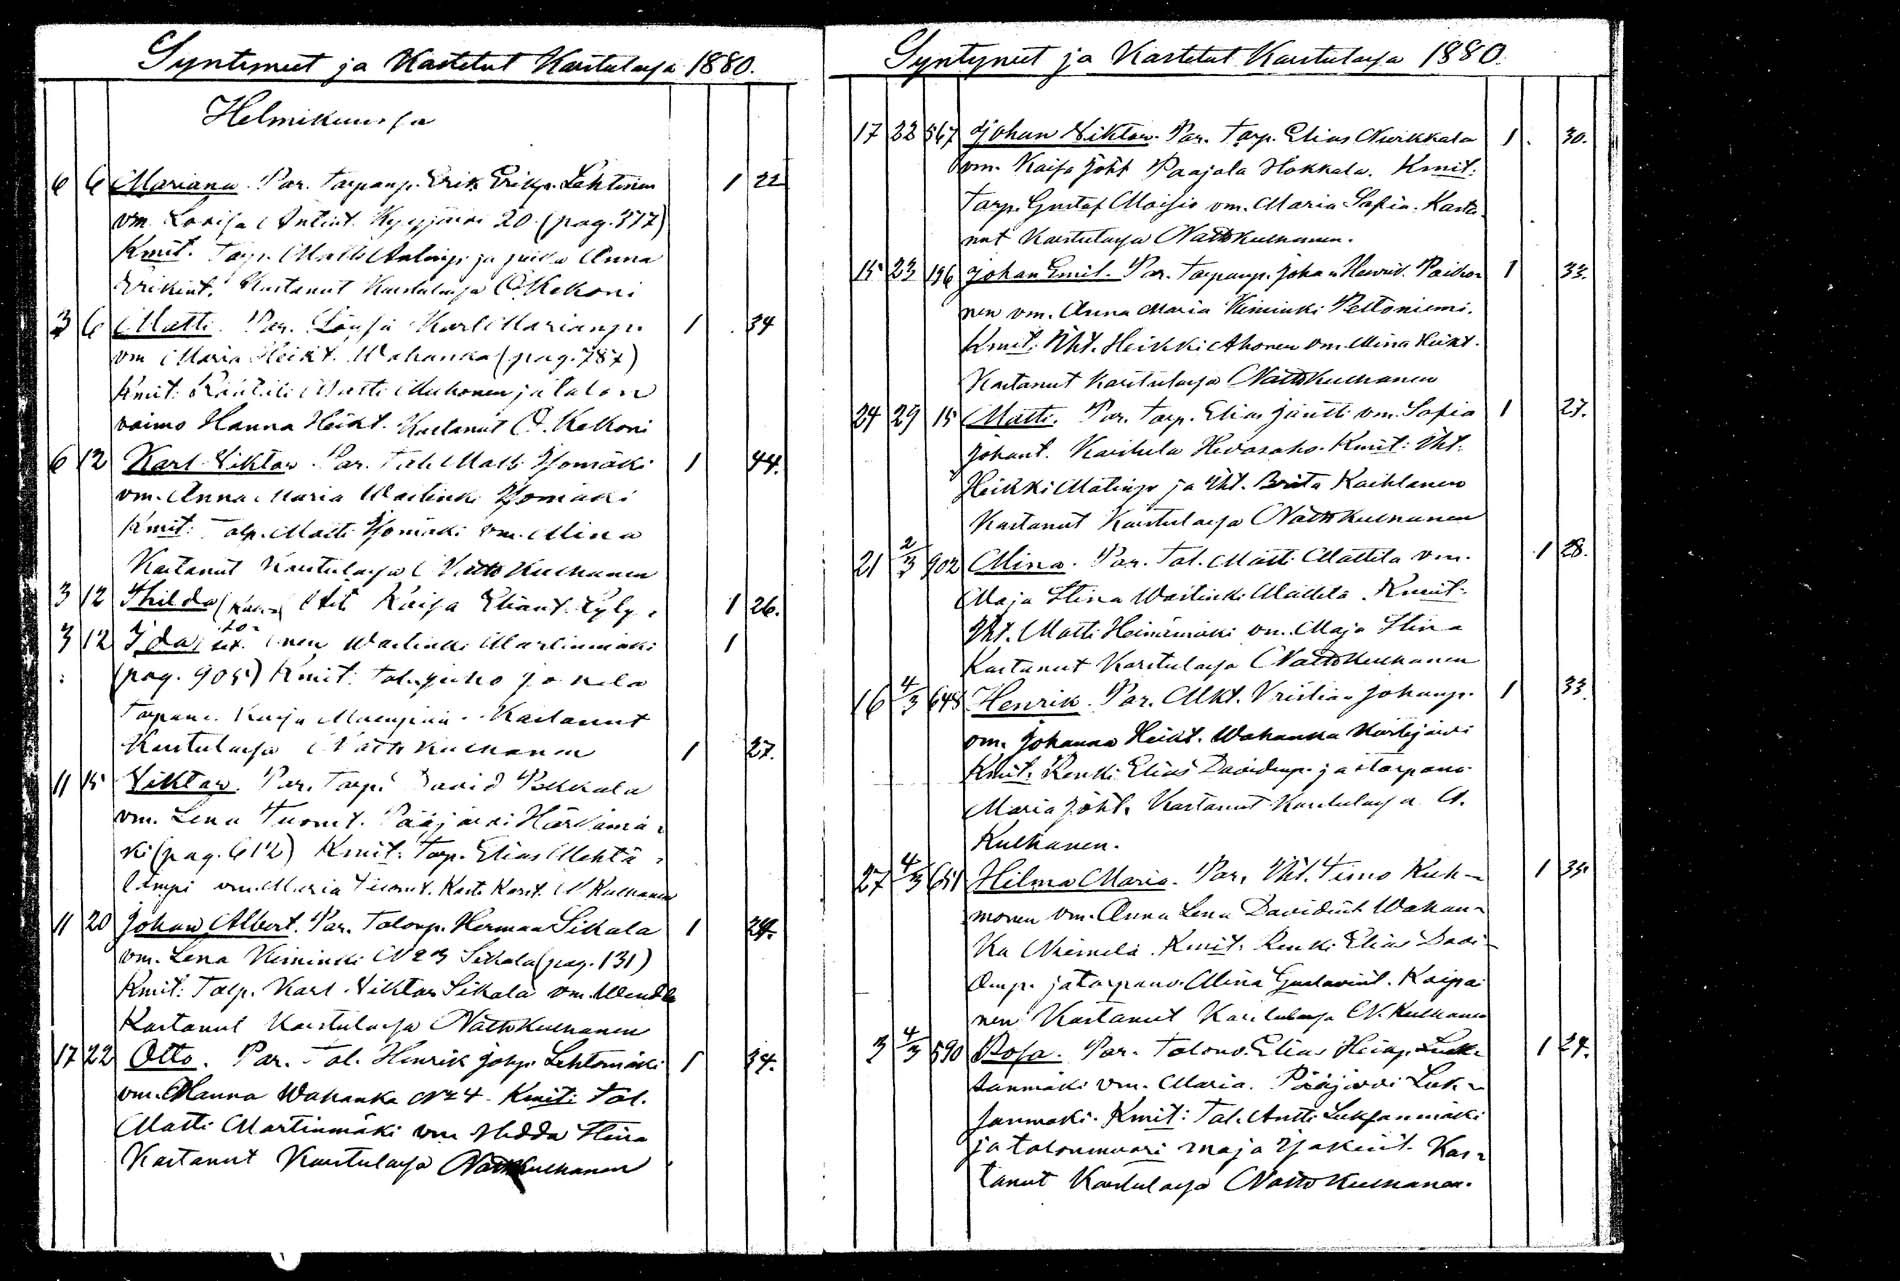 Syntyneet ja Kastetut Karstulassa 1880.
Helmikuussa
6 6 Mariana. Par. Torpanp. Erik Erikp. Lehtinen 1 22
vm. Lovisa Antint. Kyyjärvi 20 (pag. 377)
Kmit. Torp. Matts Antinp. ja piika Anna
Erikint. Kastanut Karstulassa O. Kekoni
3 6 Matti. Par. Karl 1 34
vm Maria Heikt. Wahanka (pag. 787)
Kmit: Räätäli Matti Muhonen ja talon
vaimo Hanna Heikt. Kastanut O. Kekoni
6 12 Karl Viktor. Par. Tal. Matts Isomäki 1 44.
vm. Anna Maria Wastinki Isomäki
Kmit: Talp. Matti Isomäki vm. Mina
Kastanut Karstulassa Natts Kulhanen
3 12 Hilda Äiti Kaisa Eliant. Kyly- 1 26.
3 12 Ida nen Wastinki Martinmäki 1
(pag. 905) Kmit: Jokela
Kastanut
Karstulassa Natts Kulhanen 1 27.
11 15 Viktor. Par. Torp. David Pekkala
vm. Lena Tuomt. Pääjärvi Härkämä-
ki (pag. 612) Kmit: Torp. Elias Mehtä-
lampi vm. Maria Tuomt. Kast. Karst. N Kulhanen
11 20 Johan Albert. Par. Talonp. Herman Sikala 1 24.
vm. Lena Kiminki N23 Sikala (pag. 131)
Kmit: Talp. Karl Viktor Sikala vm. Wendla
Kastanut Karstulassa Natts Kulhanen
17 22 Otto. Par. Tal. Henrik Johp. Lehtomäki 1 34.
vm. Hanna Wahanka No 4. Kmit: Tal.
Matti Martinmäki vm. Hedda Stina
Kastanut Karstulassa Natts Kulhanen
Syntyneet ja Kastetut Karstulassa 1880.
17 22 567 Johan Viktor. Par. Torp. Elias Nurkkala 1 30.
vm. Kaisa Joht Paajala Hokkala. Kmit:
Torp. Gustaf Moisio vm. Maria Sofia. Kasta-
nut Karstulassa Natts Kulhanen.
15 23 196 Johan Emil. Par. Torpanp. Johan Henrik Poiko- 1 33.
nen vm. Anna Maria Kiminki Peltoniemi.
Kmit: Itht. Heikki Ahonen vm. Mina Heikt.
Kastanut Karstulassa Natts Kulhanen
24 29 15 Matti. Par. Torp. Elias Jäntti vm. Sofia 1 27.
Johant. Karstula Hevosaho. Kmit: Itht.
Heikki Matinp. ja Itht. Brita Kaihlanen
Kastanut Karstulassa Natts Kulhanen
21 2/3 902 Mina. Par. Tal. Matti Mattila vm. 1 28.
Maja Stina Wastinki Mattila. Kmit:
Itht. Matti Heinämäki vm. Maja Stina
Kastanut Karstulassa Natts Kulhanen
16 4/3 648 Henrik. Par. Mkt. Kristian Johanp. 1 33.
vm. Johanna Heikt. Wahanka
Kmit: Renki Elias Davidinp. ja torpanv.
Maria Joht. Kastanut Karstulassa N.
Kulhanen.
27 4/3 651 Hilma Maria. Par. Itht. Timo Kuh- 1 35.
monen vm. Anna Lena Davidint. Wahan-
ka Niemelä. Kmit: Renki Elias Davi-
dinp. ja torpanv. Mina Gustavint. Koipai-
nen Kastanut Karstulassa N. Kulhanen
3 4/3 590 Rosa. Par. Talonv. Elias Heikp. Luk- 1 24.
sanmäki vm. Maria. Pääjärvi Luk-
sanmäki. Kmit: Tal. Antti Luksanmäki
ja talonmuori Maja Isakint. Kas-
tanut Karstulassa Natts Kulhanen.